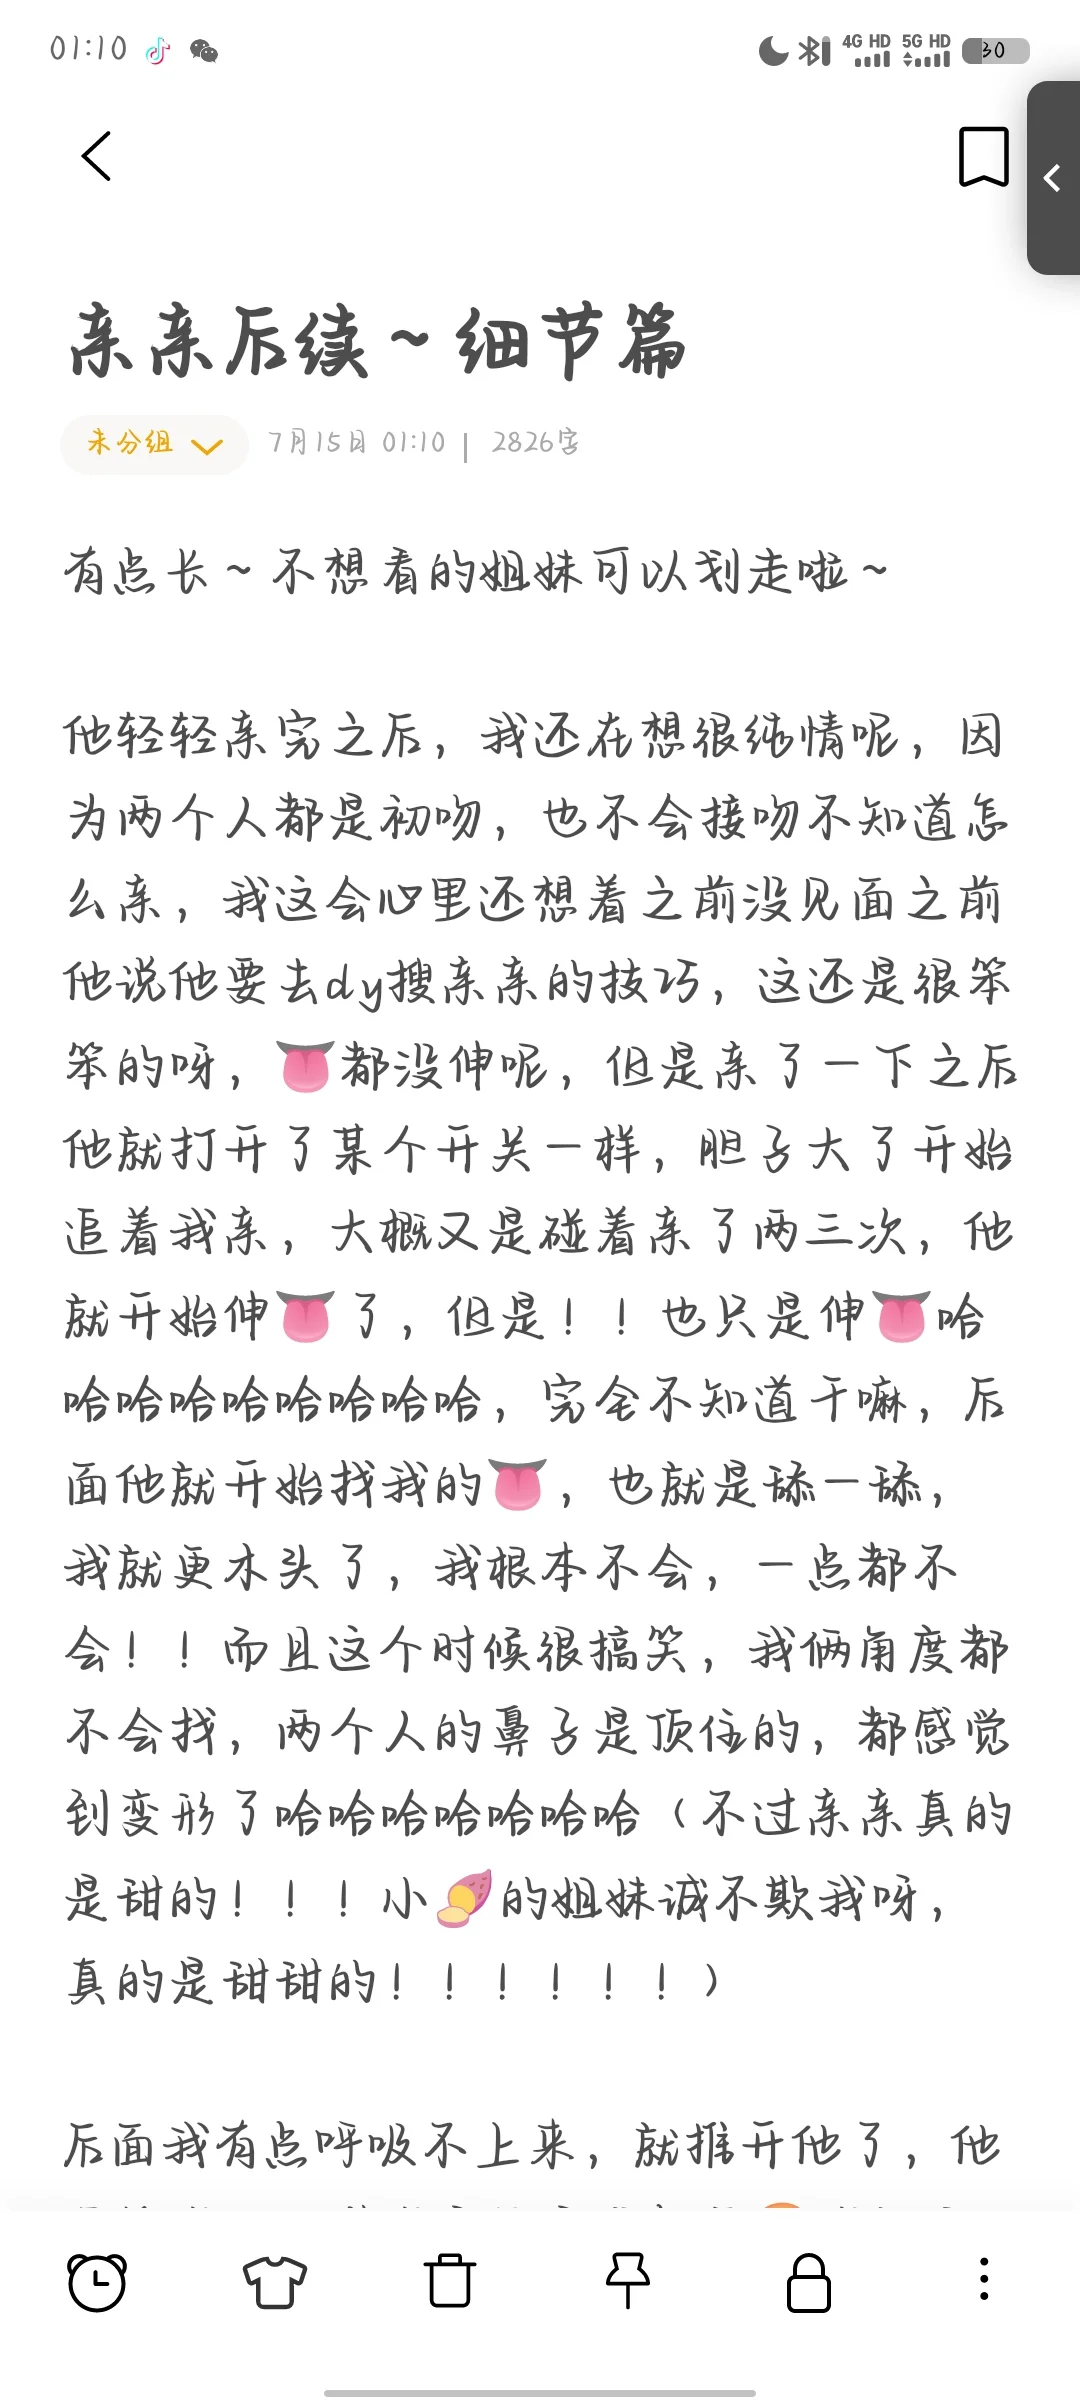 01:10
4G HD 5G HD 30
亲亲后续~细节篇
未分组 7月15日 01:10 | 2826字
有点长~不想看的姐妹可以划走啦~
他轻轻亲完之后，我还在想很纯情呢，因
为两个人都是初吻，也不会接吻不知道怎
么亲，我这会心里还想着之前没见面之前
他说他要去dy搜亲亲的技巧，这还是很笨
笨的呀，👅都没伸呢，但是亲了一下之后
他就打开了某个开关一样，胆子大了开始
追着我亲，大概又是碰着亲了两三次，他
就开始伸👅了，但是！！也只是伸👅哈
哈哈哈哈哈哈哈哈，完全不知道干嘛，后
面他就开始找我的👅，也就是舔一舔，
我就更木头了，我根本不会，一点都不
会！！而且这个时候很搞笑，我俩角度都
不会找，两个人的鼻子是顶住的，都感觉
到变形了哈哈哈哈哈哈哈（不过亲亲真的
是甜的！！！小🍠的姐妹诚不欺我呀，
真的是甜甜的！！！！！！）
后面我有点呼吸不上来，就推开他了，他